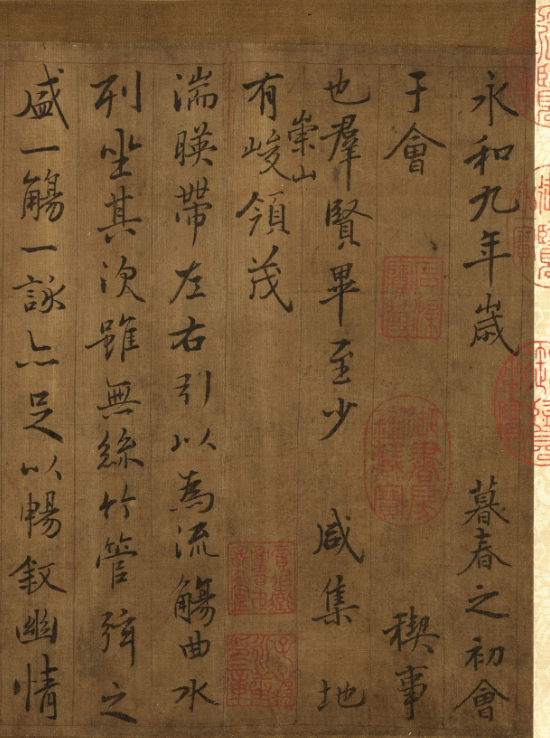 永和九年歳暮春之初會
于會稧事
也羣賢畢至少咸集地
有崇山峻領茂
湍暎帶左右引以為流觴曲水
列坐其次雖無絲竹管弦之
盛一觴一詠亦足以暢敘幽情
石渠寶笈
御書房鑑藏寶